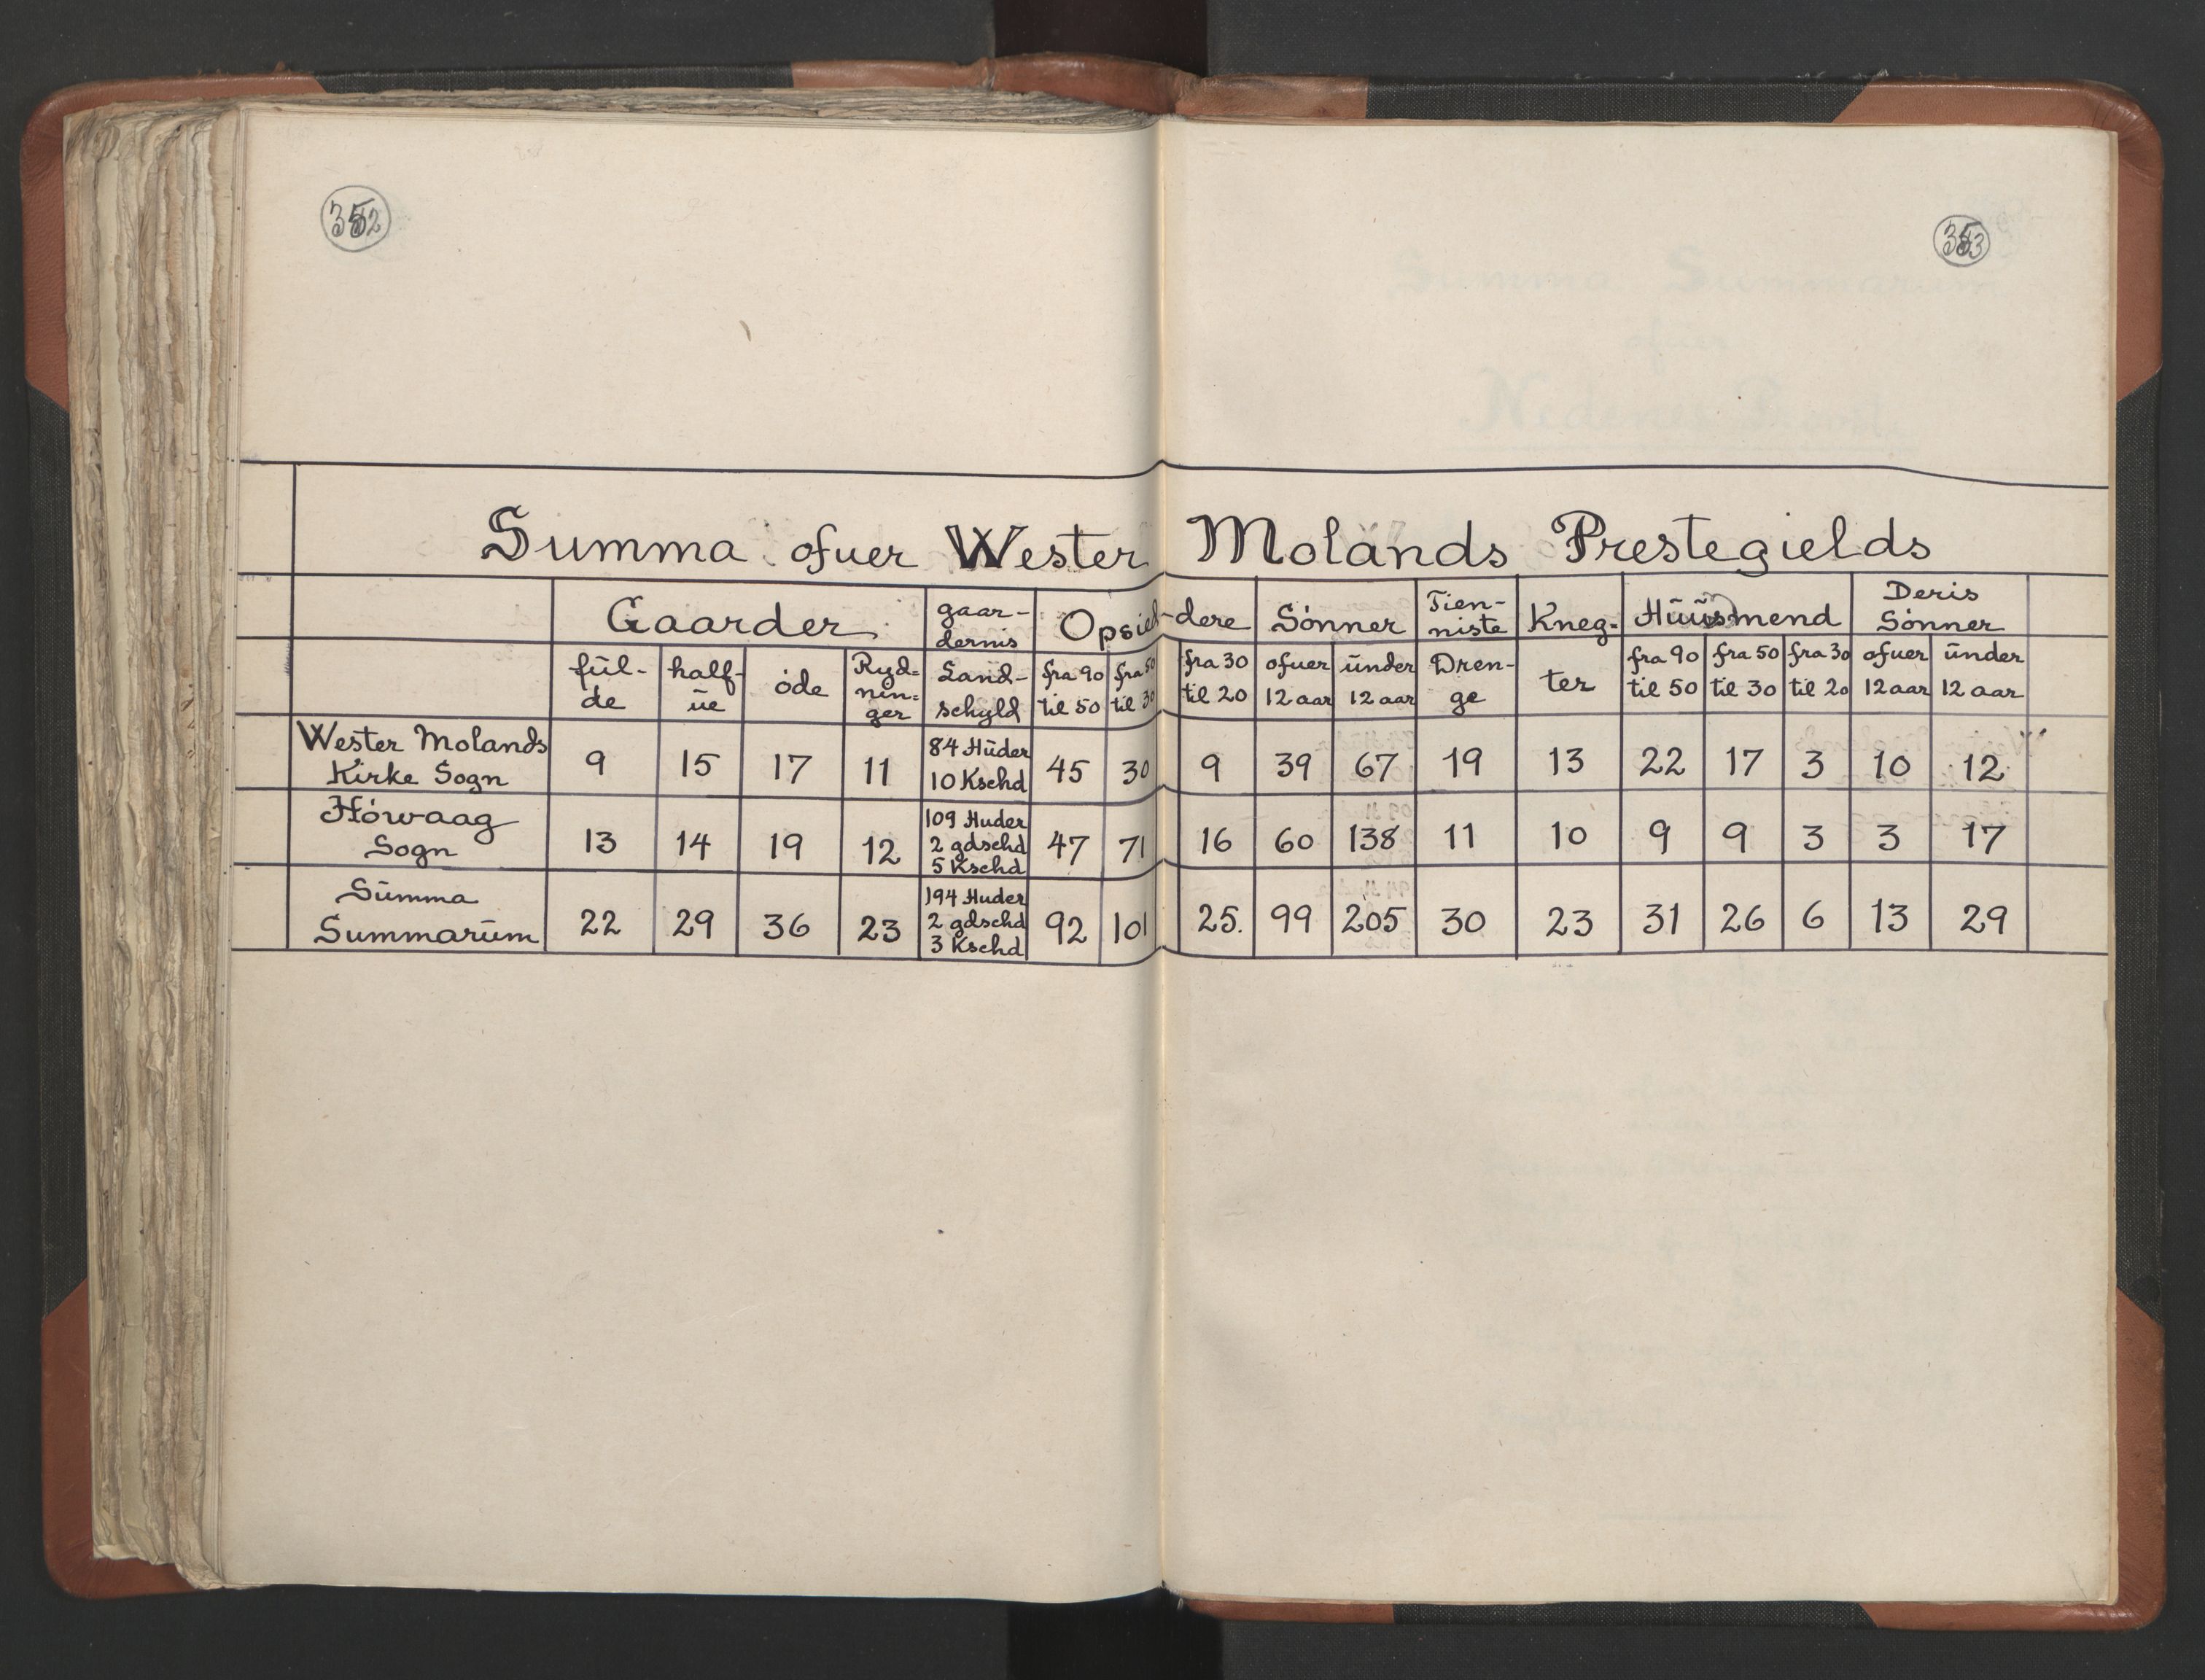 352
353
Summa ofuer Wester Molands Prestegields
Gaarder gaar- Opsid-dere Sónner Tien- Kneg- Hüüsmend Deris
dernis niste Sónner
fül- half- óde Ryd- Land- fra 90 fra 50 fra 30 ofuer ünder Dren- ter fra 90 fra 50 fra 30 ofuer ünder
de üe nin- schyld til 50 til 30 til 20 12 aar 12 aar ge til 50 til 30 til 20 12 aar 12 aar
ger
Wester Molands 9 15 17 11 84 Hüder 45 30 9 39 67 19 13 22 17 3 10 12
Kirke Sogn 10 Kschd
Hówaag 13 14 19 12 109 Huder 47 71 16 60 138 11 10 9 9 3 3 17
Sogn 2 gdschd
5 Kschd
Sümma 22 29 36 23 194 Huder 92 101 25. 99 205 30 23 31 26 6 13 29
Summarüm 2 gdschd
3 Kschd